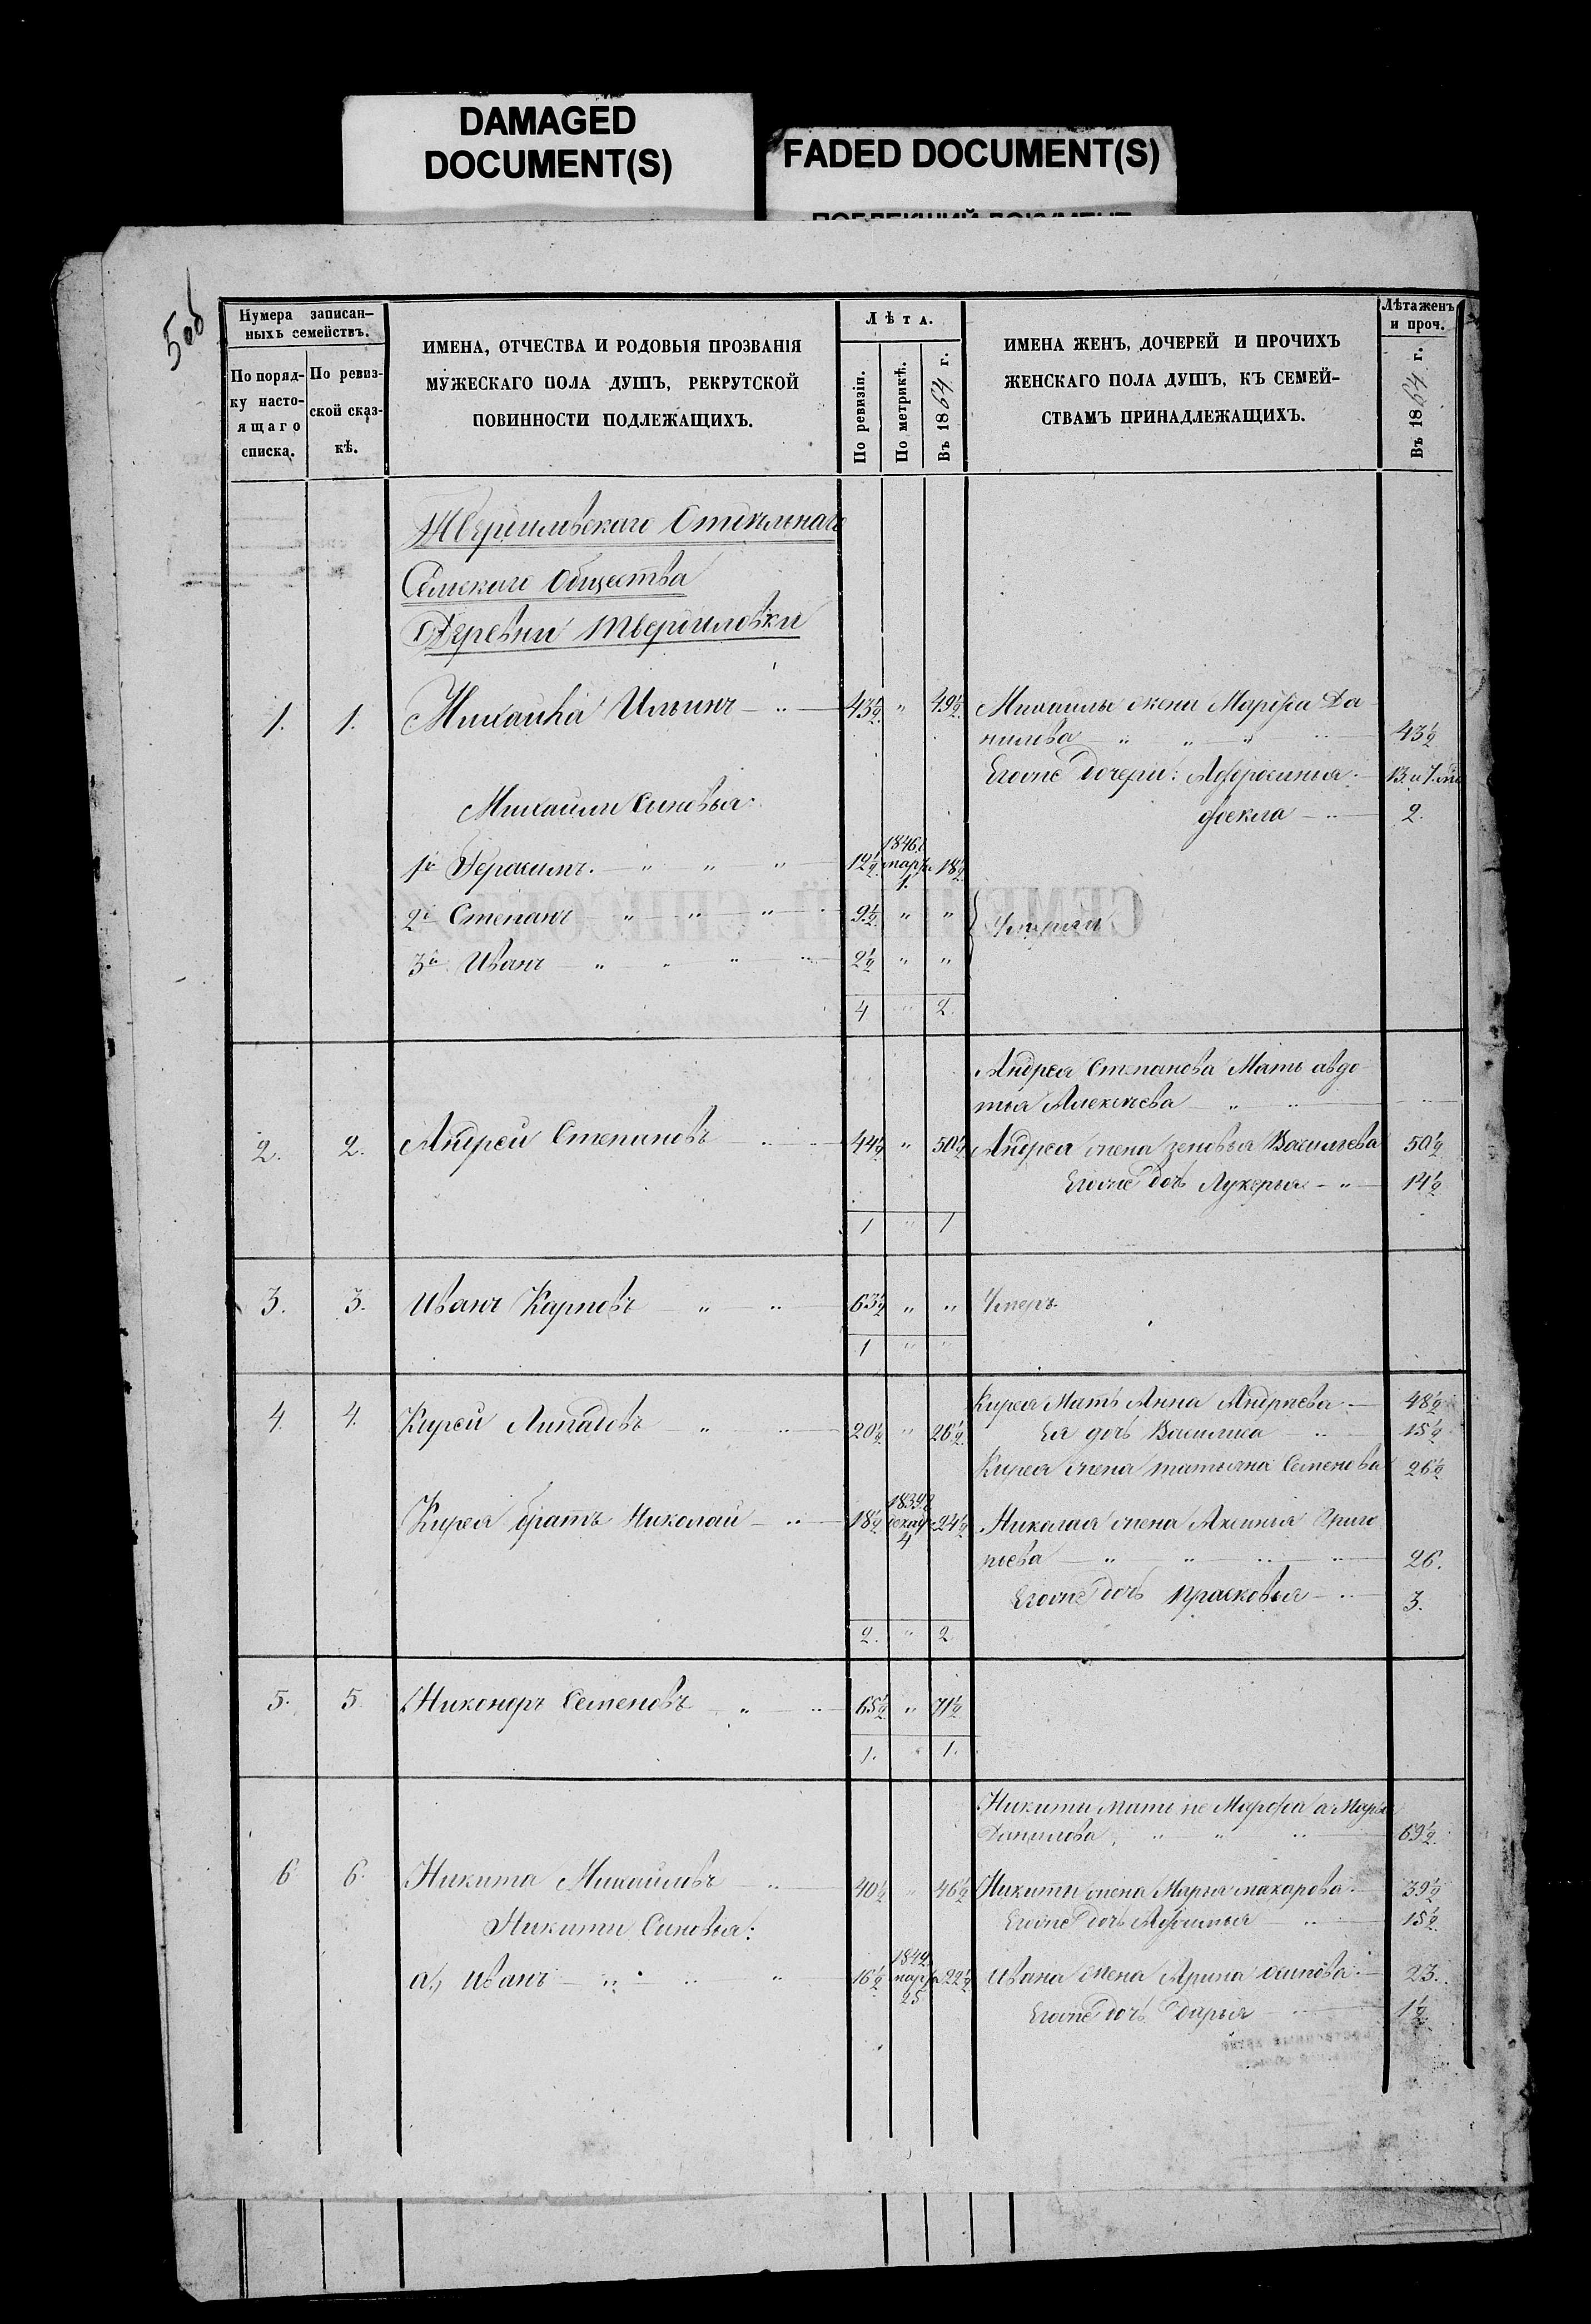 DAMAGED
DOCUMENT(S)
FADED DOCUMENT(S)
5об
Нумера записан-
ныхъ семействъ.
По поряд-
ку насто-
ящаго
списка.
По ревиз-
ской сказ-
кѣ.
ИМЕНА, ОТЧЕСТВА И РОДОВЫЯ ПРОЗВАНІЯ
МУЖЕСКАГО ПОЛА ДУШЪ, РЕКРУТСКОЙ
ПОВИННОСТИ ПОДЛЕЖАЩИХЪ.
Лѣта.
По ревизіи.
По метрикѣ.
Въ 1864 г.
ИМЕНА ЖЕНЪ, ДОЧЕРЕЙ И ПРОЧИХЪ
ЖЕНСКАГО ПОЛА ДУШЪ, КЪ СЕМЕЙ-
СТВАМЪ ПРИНАДЛЕЖАЩИХЪ.
Лѣта женъ
и проч.
Въ 1864 г.
Сельскаго Общества
1. 1. Михайла Ильинъ 43½ " 49½ Михайлы жена Марфа Да
нилова 43½
Егоже дочери: Афросинья 13 и
Фекла 2.
Михайлы Сыновья:
1й Герасимъ. 12½ 1846 мар. 1. 18½
2й Степанъ 9½ " "
3й Иванъ 2½ " "
Умерли
4 " 2.
Андрея Степанова Мать Авдо
тья Алексѣева
2. 2. Андрей Степановъ 44½ " 50½ Андрея жена Зеновья Васильева 50½
Егоже дочь Лукерья 14½
1 " 1
3. 3. Иванъ Карповъ 63½ " " Умеръ.
1 " "
Кирея Мать Анна Андреева 48½
4. 4. Кирей Липатовъ 20½ " 26½ Ея дочь Василиса 15½
Кирея жена Татьяна Семенова 26½
Кирея братъ Николай 18½ 1839 декаб 4 24½ Николая жена Аксинья Григо
рьева 26.
Егоже дочь Прасковья 3.
2. " 2
5. 5. Никоноръ Семеновъ 65½ " 71½
1. " 1.
Никиты мать не Марфа а Марья
Данилова 69½
6 6. Никита Михайловъ 40½ " 46½ Никиты жена Марья Макарова 39½
Никиты Сыновья:
Егоже дочь Афимья 15½
а, Иванъ 16½ 1842 мар 25 22½ Ивана жена Арина Осипова 23.
Егоже дочь Дарья 1½